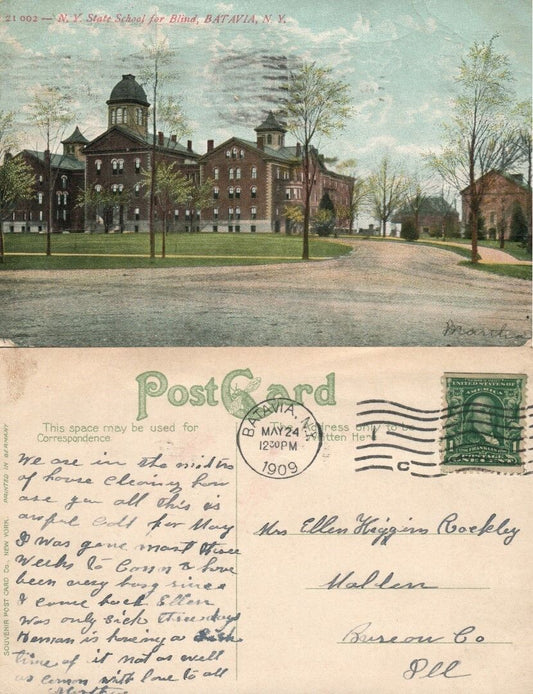 21 002 — N. Y. State School for Blind, BATAVIA, N. Y.
Martha
Post Card
This space may be used for
Correspondence.
The Address only to be
Written Here.
BATAVIA, N.Y.
MAY 24
12 30 PM
1909
C
UNITED STATES OF
We are in the midts
of house cleaning how
are you all this is
awful Cold for May
I was gone most three
Weeks to Conn & have
been very busy since
I come back Ellen
was only sick thursdays
Herman is having a
time of it not as well
as common with love to all
Martha
Mrs Ellen Higgins Rockley
Malden
Bureon Co
Ill
SOUVENIR POST CARD CO., NEW YORK.
PRINTED IN GERMANY